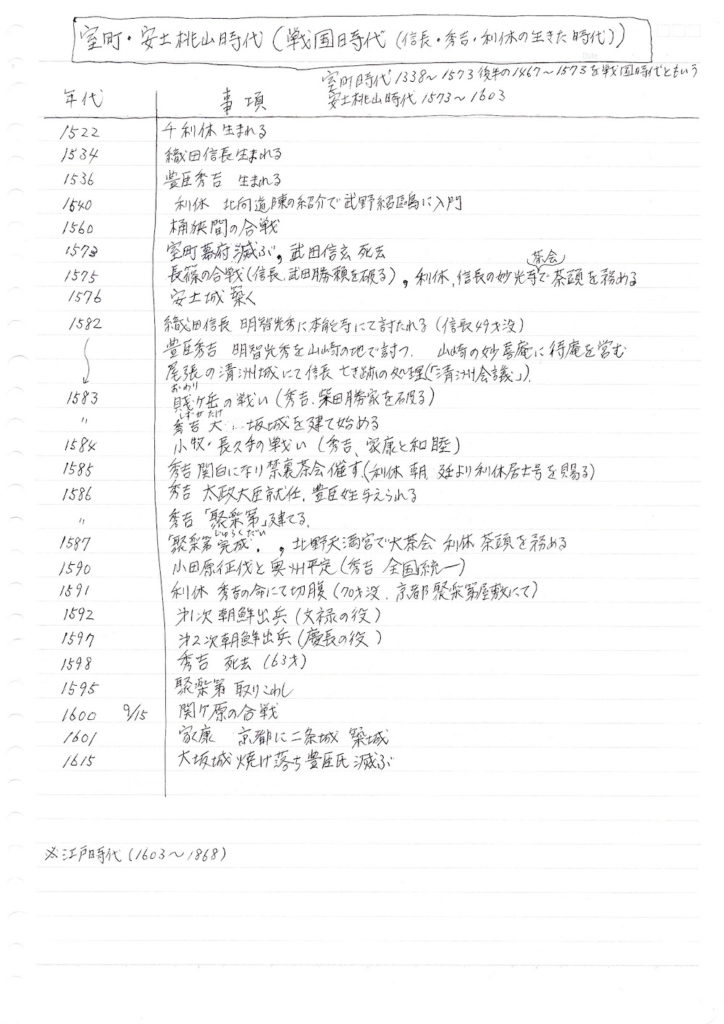 室町・安土桃山時代(戦国時代(信長・秀吉・利休の生きた時代))
室町時代1338～1573後半の1467～1573を戦国時代ともいう
安土桃山時代 1573～1603
年代 事項
1522 千利休 生まれる
1534 織田信長生まれる
1536 豊臣秀吉 生まれる
1540 利休 北向道陳の紹介で武野紹鷗に入門
1560 桶狭間の合戦
1573 室町幕府滅ぶ，武田信玄 死去
茶会
1575 長篠の合戦(信長、武田勝頼を破る)，利休、信長の妙光寺で茶頭を務める
1576 安土城 築く
1582 織田信長 明智光秀に本能寺にて討たれる(信長49才没)
豊臣秀吉 明智光秀を山崎の地で討つ． 山崎の妙喜庵に待庵を営む
尾張の清洲城にて信長 亡き跡の処理(「清洲会議」)．
おわり
1583 賤ケ岳の戦い(秀吉、柴田勝家を破る)
しずがたけ
〃 秀吉 大坂城を建て始める
1584 小牧・長久手の戦い (秀吉、家康と和睦)
1585 秀吉関白になり禁裏茶会催す(利休 朝廷より利休居士号を賜る)
1586 秀吉 太政大臣就任、豊臣姓与えられる
〃 秀吉「聚楽第」建てる．
じゅらくだい
1587 聚楽第完成．，北野天満宮で大茶会 利休 茶頭を務める
1590 小田原征伐と奥州平定(秀吉 全国統一)
1591 利休 秀吉の命にて切腹(70才没．京都聚楽第屋敷にて)
1592 第1次朝鮮出兵(文禄の役)
1597 第2次朝鮮出兵(慶長の役)
1598 秀吉 死去(63才)
1595 聚楽第 取りこわし
1600 9/15 関ケ原の合戦
1601 家康 京都に二条城 築城
1615 大坂城焼け落ち豊臣氏滅ぶ
※江戸時代(1603～1868)